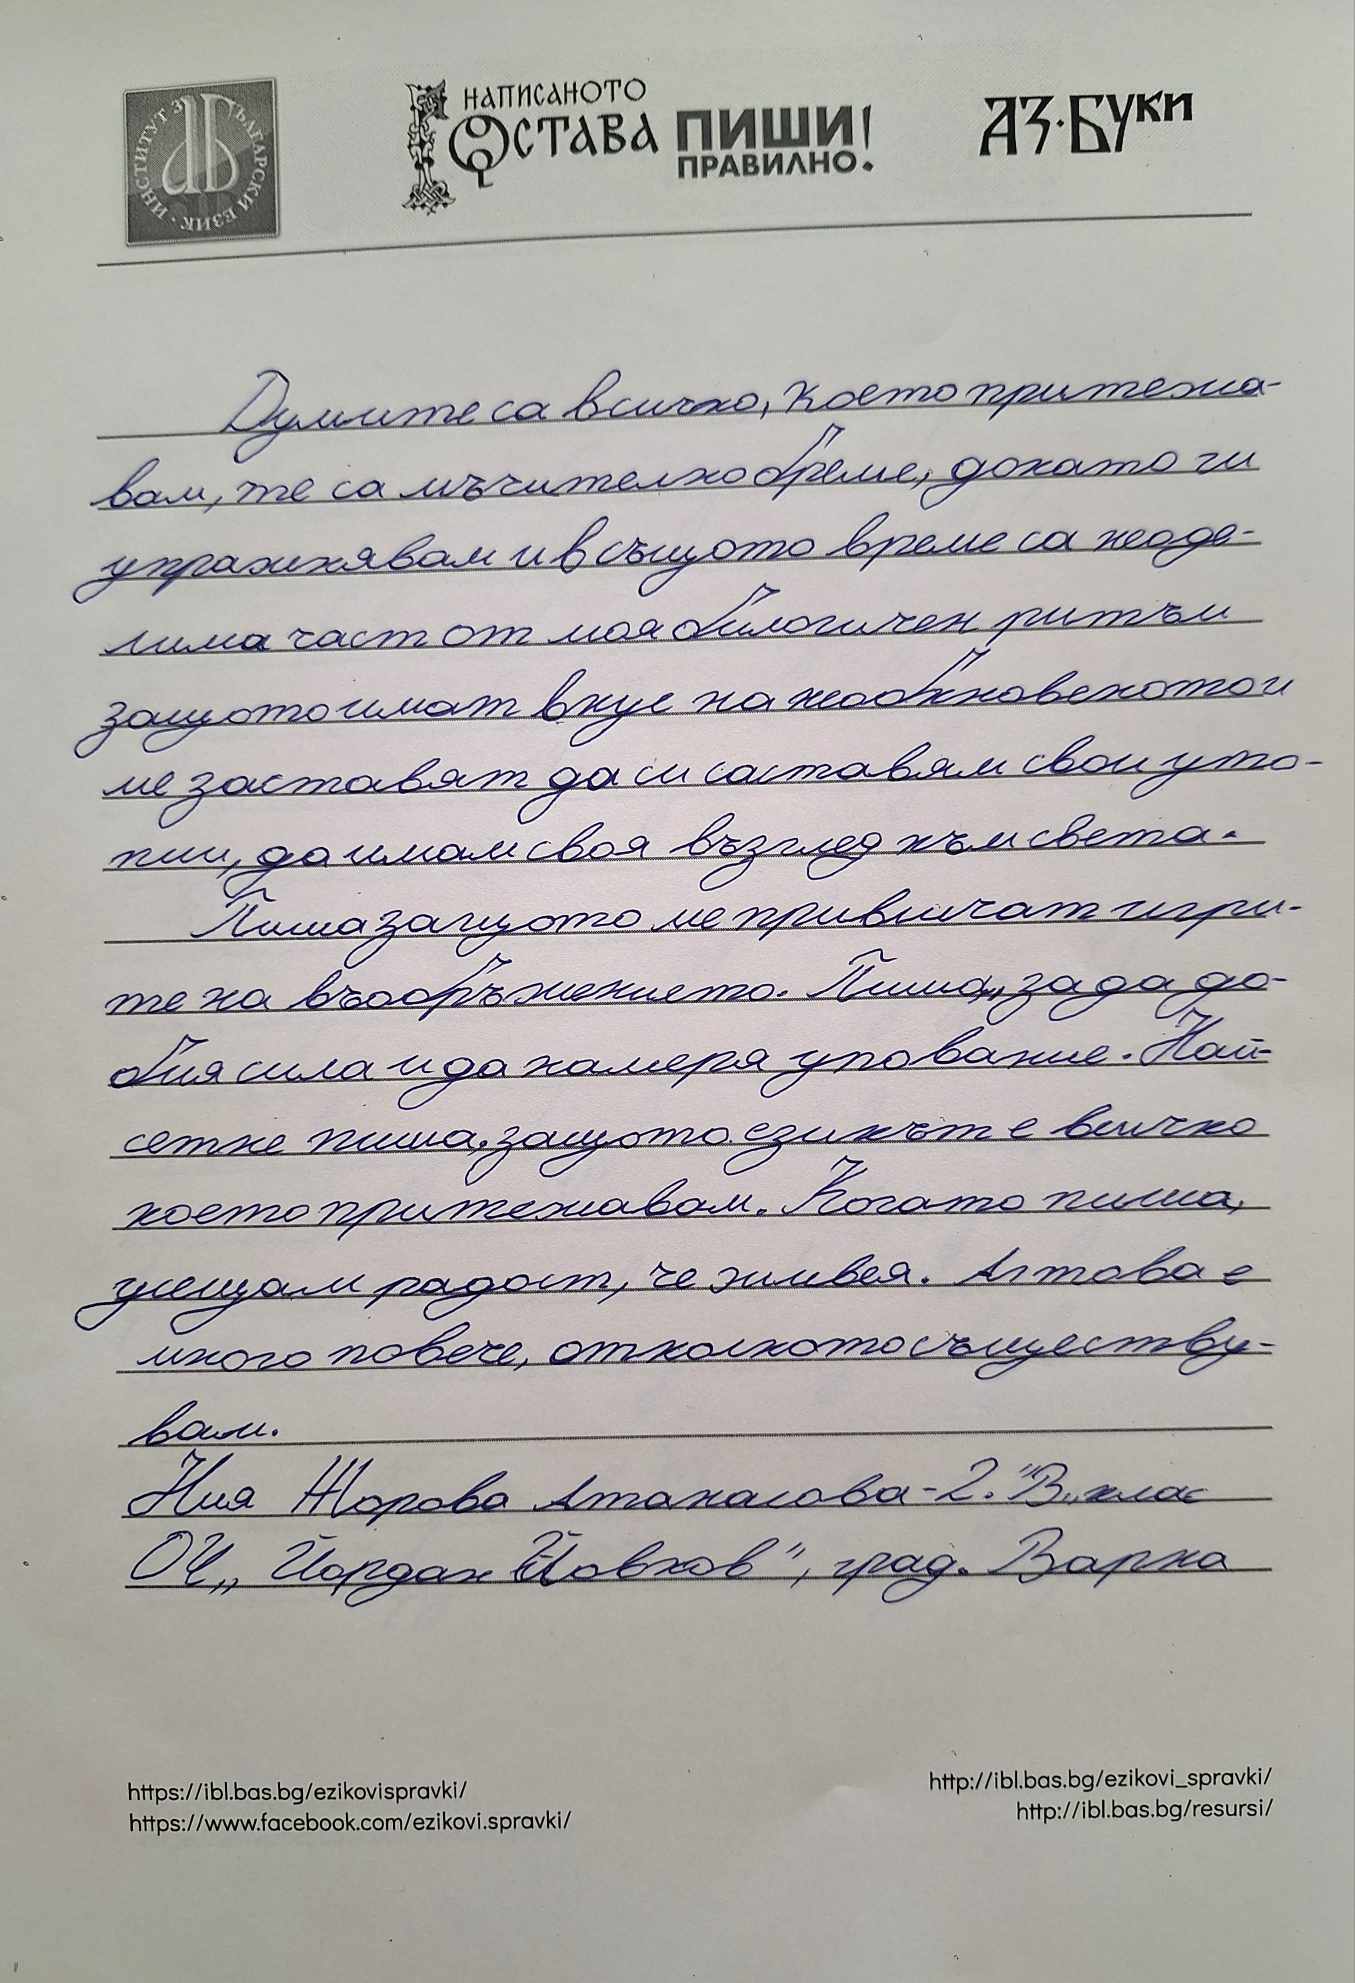 ИНСТИТУТ ЗА БЪЛГАРСКИ ЕЗИК
НАПИСАНОТО
ОСТАВА
ПИШИ!
ПРАВИЛНО.
АЗ·БУКИ
Думите са всичко, което притежа-
вам, те са мъчително бреме, докато ги
упражнявам и в същото време са неоде-
лима част от моя билогичен ритъм
защото имат вкус на необкновеното и
ме заставят да си саставям свои уто-
пии, да имам своя възглед към света.
Пиша защото ме привличат игри-
те на въобръжението. Пиша,, за да до-
бия сила и да намеря упование. Най-
сетне пиша, защото езикът е всичко
което притежавам. Когато пиша,
усещам радост, че живея. А това е
много повече, отколкото съществу-
вам.
Ния Жорова Атанасова - 2. "В,, клас
ОУ,, Йордан Йовков", град. Варна
https://ibl.bas.bg/ezikovispravki/
http://ibl.bas.bg/ezikovi_spravki/
https://www.facebook.com/ezikovi.spravki/
http://ibl.bas.bg/resursi/